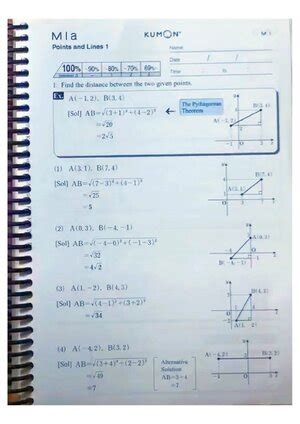 M1a
KUMON
Points and Lines 1
Name
Date / /
Time : to :
100% ~90% ~80% ~70% 69%~
1. Find the distance between the two given points.
Ex. A(−1, 2), B(3, 4)
[Sol] AB=√(3+1)²+(4−2)²
The Pythagorean Theorem
=√20
=2√5
B(3, 4)
A(−1, 2)
(1) A(3, 1), B(7, 4)
[Sol] AB=√(7−3)²+(4−1)²
=√25
=5
B(7, 4)
A(3, 1)
(2) A(0, 3), B(−4, −1)
[Sol] AB=√(−4−0)²+(−1−3)²
=√32
=4√2
A(0, 3)
B(−4, −1)
(3) A(1, −2), B(4, 3)
[Sol] AB=√(4−1)²+(3+2)²
=√34
B(4, 3)
A(1, −2)
(4) A(−4, 2), B(3, 2)
[Sol] AB=√(3+4)²+(2−2)²
=√49
=7
Alternative
Solution
A(−4, 2) B(3, 2)